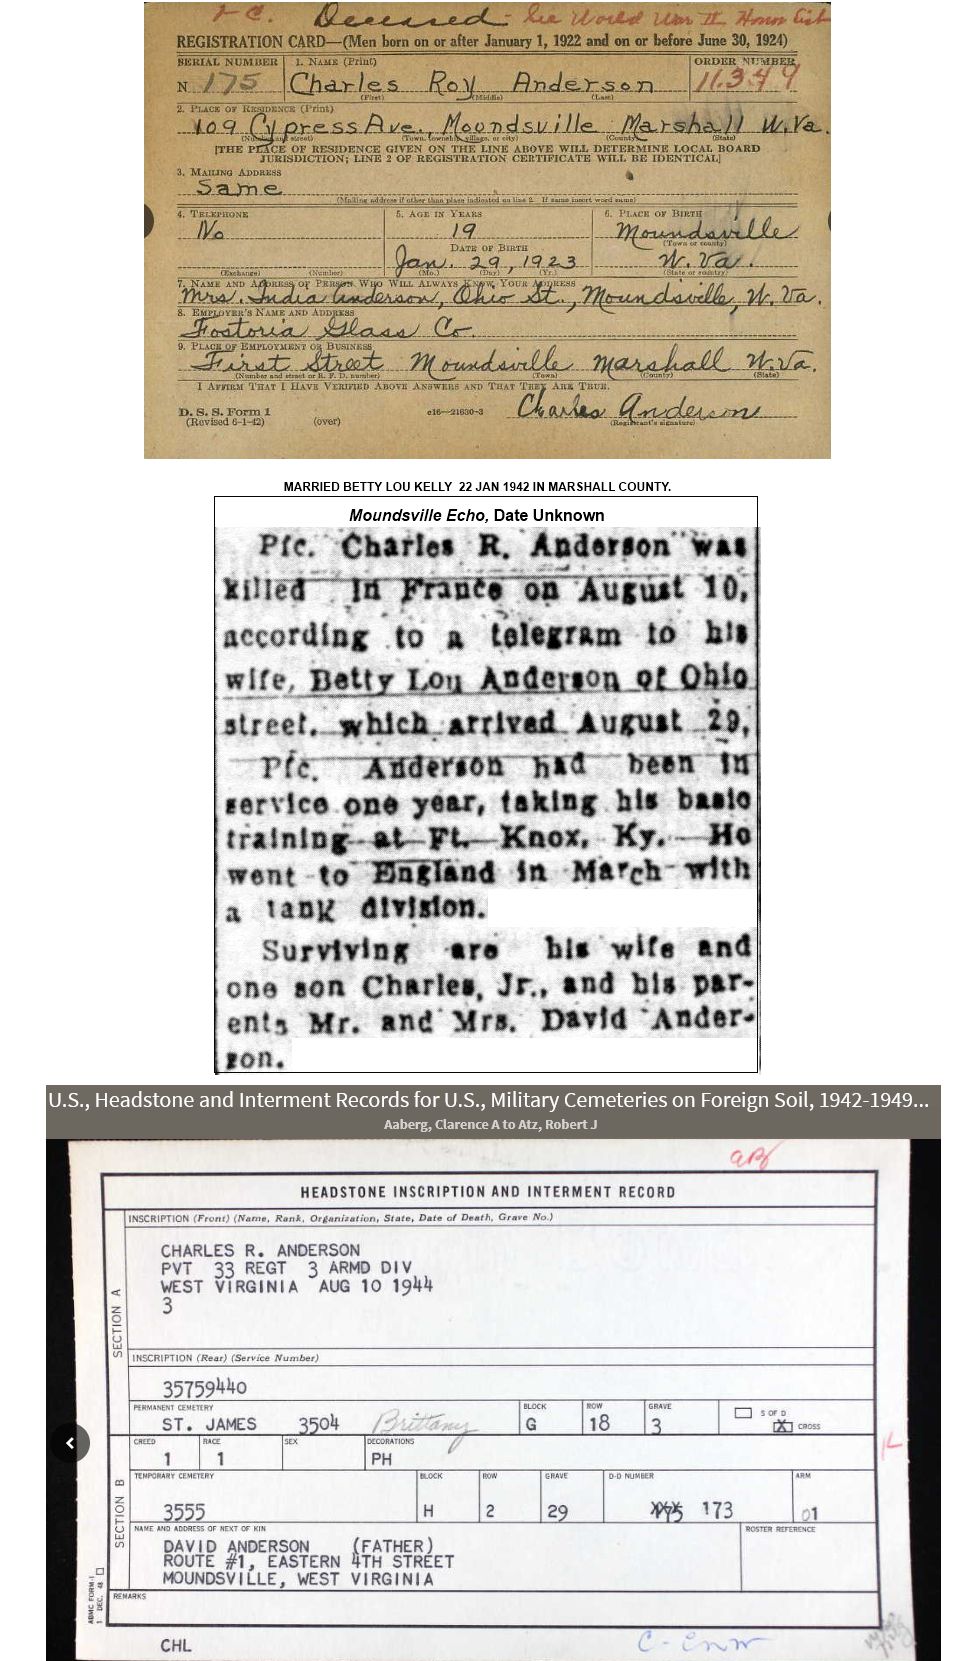 Deceased - See World War II Honor List
REGISTRATION CARD—(Men born on or after January 1, 1922 and on or before June 30, 1924)
SERIAL NUMBER 1. NAME (Print) ORDER NUMBER
N 175 Charles Roy Anderson 11349
(First) (Middle) (Last)
2. PLACE OF RESIDENCE (Print)
109 Cypress Ave., Moundsville Marshall W.Va.
(Number and street) (Town, township, village, or city) (County) (State)
[THE PLACE OF RESIDENCE GIVEN ON THE LINE ABOVE WILL DETERMINE LOCAL BOARD
JURISDICTION; LINE 2 OF REGISTRATION CERTIFICATE WILL BE IDENTICAL]
3. MAILING ADDRESS
Same
(Mailing address if other than place indicated on line 2. If same insert word same)
4. TELEPHONE 5. AGE IN YEARS 6. PLACE OF BIRTH
No 19 Moundsville
DATE OF BIRTH (Town or county)
Jan. 29, 1923 W. Va.
(Exchange) (Number) (Mo.) (Day) (Yr.) (State or country)
7. NAME AND ADDRESS OF PERSON WHO WILL ALWAYS KNOW YOUR ADDRESS
Mrs. India Anderson, Ohio St., Moundsville, W. Va.
8. EMPLOYER'S NAME AND ADDRESS
Fostoria Glass Co.
9. PLACE OF EMPLOYMENT OR BUSINESS
First Street Moundsville Marshall W.Va.
(Number and street or R. F. D. number) (Town) (County) (State)
I AFFIRM THAT I HAVE VERIFIED ABOVE ANSWERS AND THAT THEY ARE TRUE.
D. S. S. Form 1 c16—21630-3 Charles Anderson
(Revised 6-1-42) (over) (Registrant's signature)
MARRIED BETTY LOU KELLY 22 JAN 1942 IN MARSHALL COUNTY.
Moundsville Echo, Date Unknown
Pfc. Charles R. Anderson was
killed in France on August 10,
according to a telegram to his
wife, Betty Lou Anderson of Ohio
street, which arrived August 29,
Pfc. Anderson had been in
service one year, taking his basic
training at Ft. Knox, Ky. He
went to England in March with
a tank division.
Surviving are his wife and
one son Charles, Jr., and his par-
ents Mr. and Mrs. David Ander-
son.
U.S., Headstone and Interment Records for U.S., Military Cemeteries on Foreign Soil, 1942-1949...
Aaberg, Clarence A to Atz, Robert J
HEADSTONE INSCRIPTION AND INTERMENT RECORD
INSCRIPTION (Front) (Name, Rank, Organization, State, Date of Death, Grave No.)
CHARLES R. ANDERSON
PVT 33 REGT 3 ARMD DIV
WEST VIRGINIA AUG 10 1944
3
SECTION A
INSCRIPTION (Rear) (Service Number)
35759440
PERMANENT CEMETERY BLOCK ROW GRAVE S OF D
ST. JAMES 3504 Brittany G 18 3 X CROSS
CREED RACE SEX DECORATIONS
1 1 PH
SECTION B
TEMPORARY CEMETERY BLOCK ROW GRAVE D-D NUMBER ARM
3555 H 2 29 173 01
NAME AND ADDRESS OF NEXT OF KIN ROSTER REFERENCE
DAVID ANDERSON (FATHER)
ROUTE #1, EASTERN 4TH STREET
MOUNDSVILLE, WEST VIRGINIA
REMARKS
ABMC FORM-1
1 DEC. 48
CHL